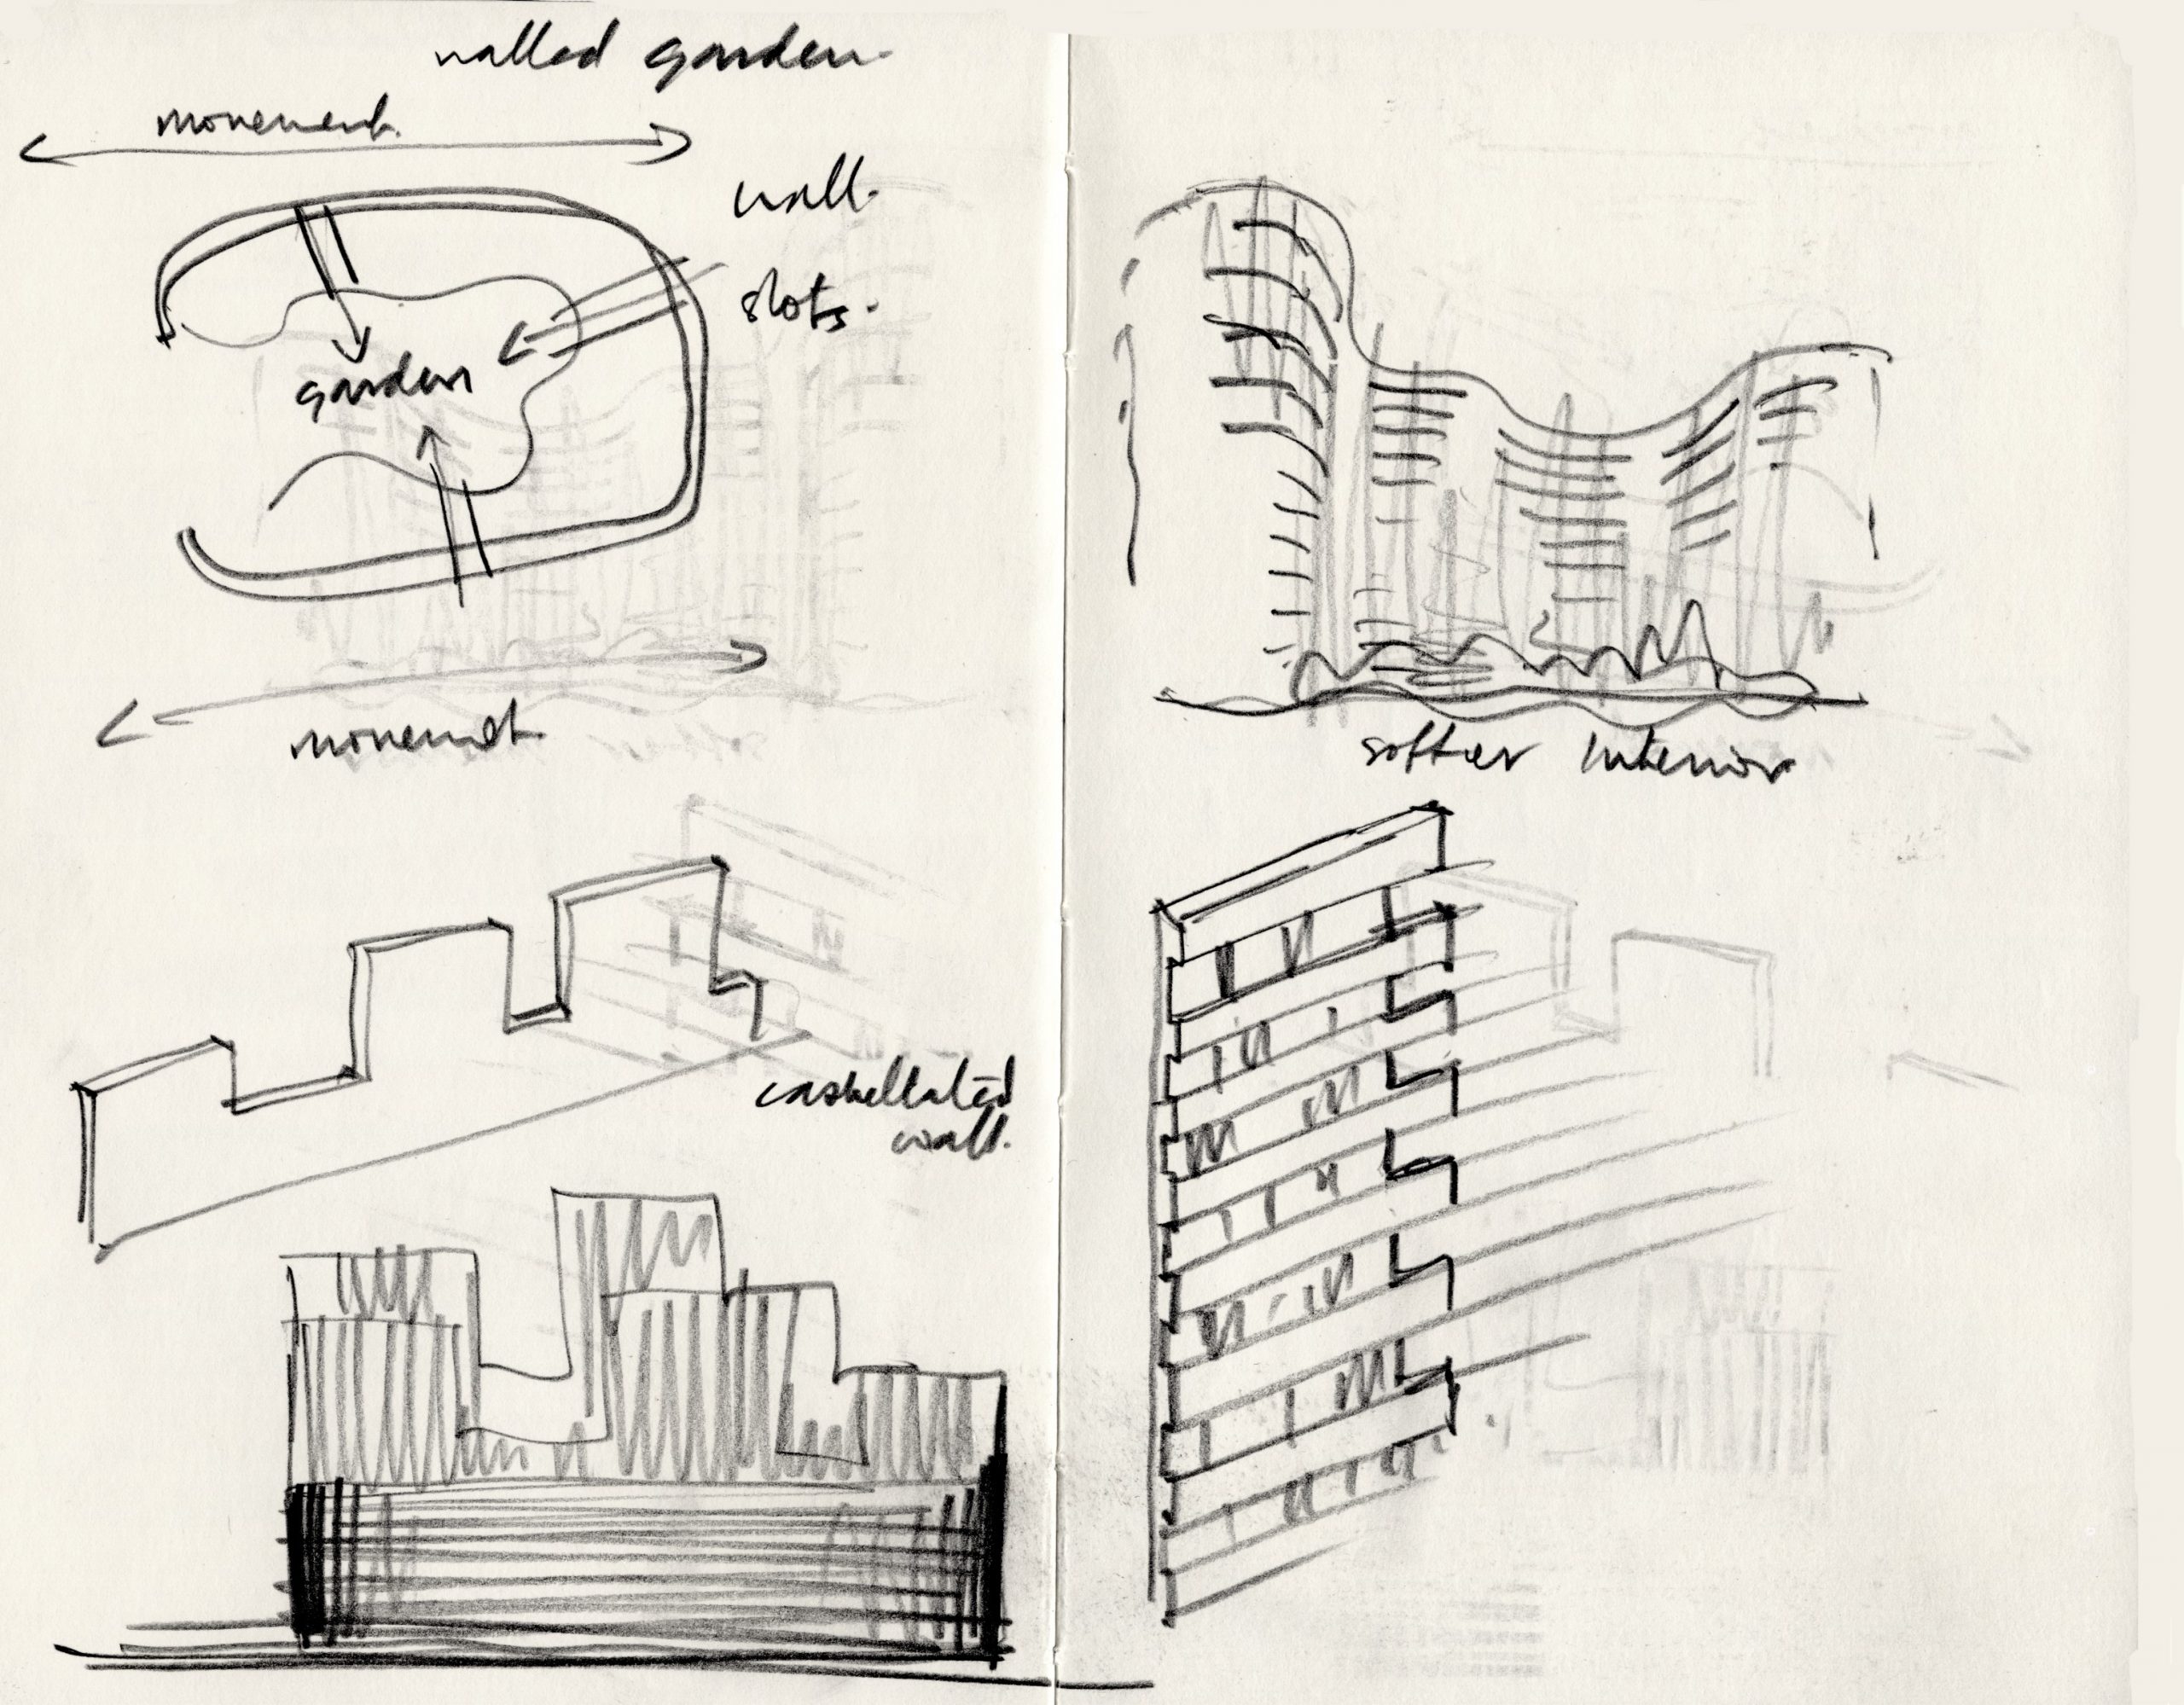 walled garden.
movement.
wall.
slots.
garden
movemet.
softer interior
castellated
wall.